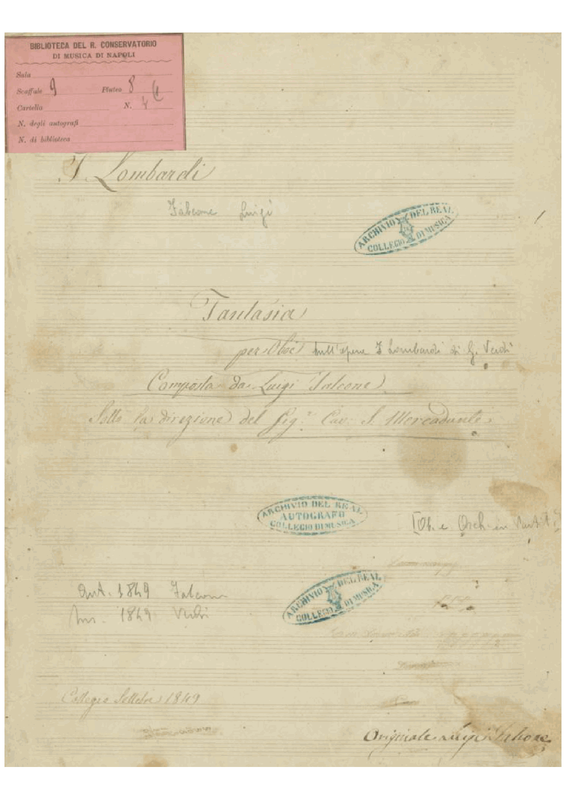 BIBLIOTECA DEL R. CONSERVATORIO
DI MUSICA DI NAPOLI
Sala
Scaffale 9 Pluteo 8
Cartella N. 4
N. degli autografi
N. di biblioteca
I Lombardi
Falcone Luigi
ARCHIVIO DEL REAL
COLLEGIO DI MUSICA
Fantasia
per Oboè sull'opera I Lombardi di G. Verdi
Composta da Luigi Falcone
Sotto la direzione del Sig.r Cav. S. Mercadante
ARCHIVIO DEL REAL
AUTOGRAFO
COLLEGIO DI MUSICA
[Ob. e Orch. in
Aut. 1849 Falcone
1849 Verdi
ARCHIVIO DEL REAL
COLLEGIO DI MUSICA
Collegio Settebre 1849
Originale Luigi Falcone